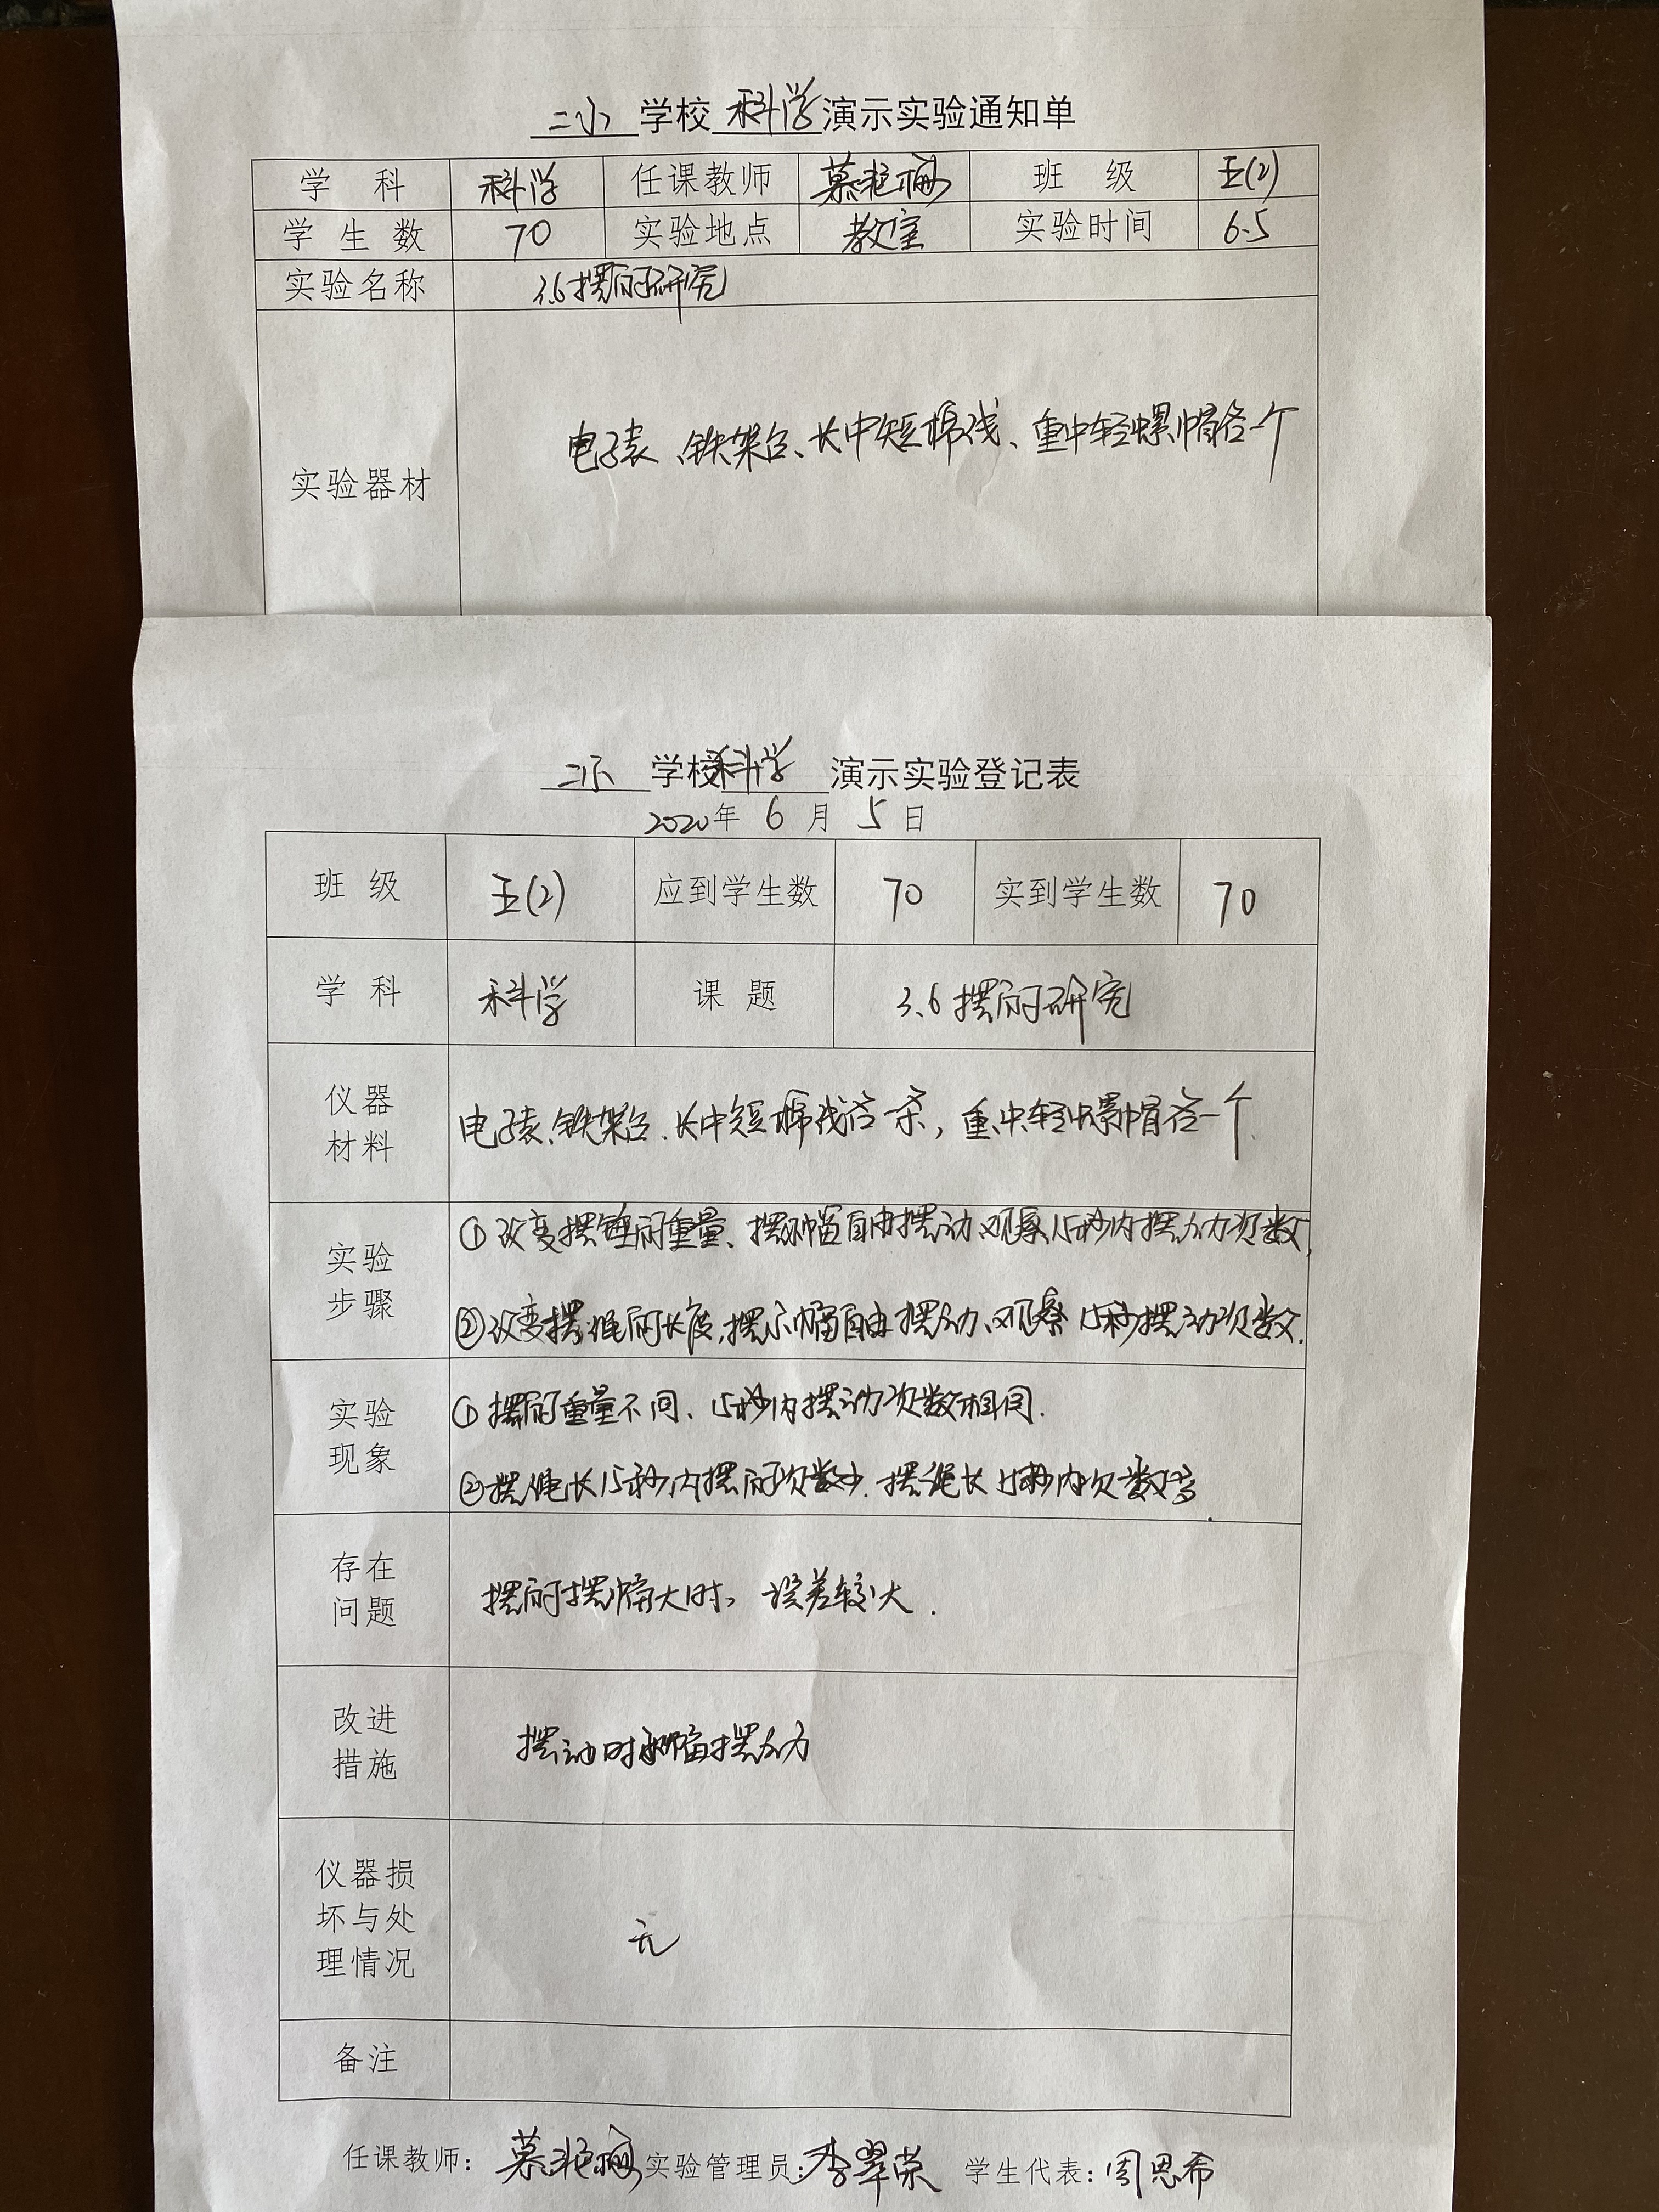 二小 学校 科学 演示实验通知单
学 科 科学 任课教师 慕艳梅 班 级 五(2)
学 生 数 70 实验地点 教室 实验时间 6.5
实验名称 3.6摆的研究
实验器材 电子表、铁架台、长中短棉线、重中轻螺帽各一个
二小 学校 科学 演示实验登记表
2020年 6 月 5 日
班 级 五(2) 应到学生数 70 实到学生数 70
学 科 科学 课 题 3.6摆的研究
仪器
材料
电子表、铁架台、长中短棉线各一条,重中轻螺帽各一个.
实验
步骤
①改变摆锤的重量、摆小幅自由摆动、观察15秒内摆动次数.
②改变摆绳的长度,摆小幅自由摆动、观察15秒摆动次数.
实验
现象
①摆的重量不同、15秒内摆动次数相同.
②摆绳长15秒内摆的次数少.摆绳长15秒内次数多.
存在
问题
摆的摆幅大时,误差较大.
改进
措施
摆动时小幅摆动
仪器损
坏与处
理情况
无
备注
任课教师: 慕艳梅 实验管理员: 李翠荣 学生代表: 周思希